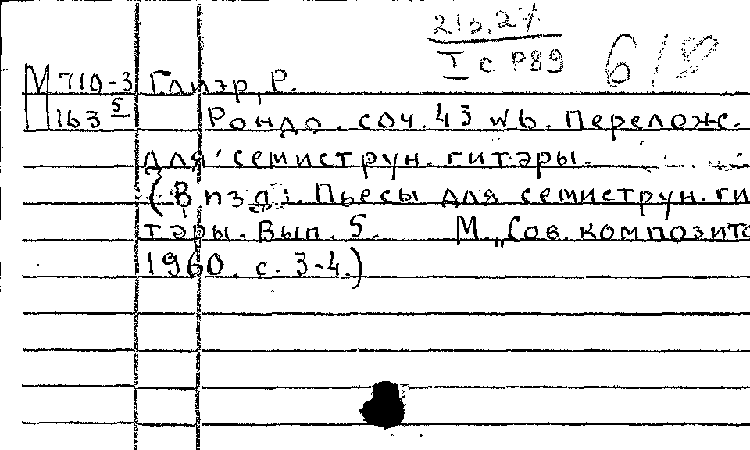 21б.27
I с Р89
618
М 710-3 Глиэр, Р.
163 5 Рондо. соч. 43 №6. Перелож.
для семиструн. гитары.
(В изд.: Пьесы для семиструн. ги
тары. Вып. 5. М., „Сов. композито
1960. с. 3-4.)